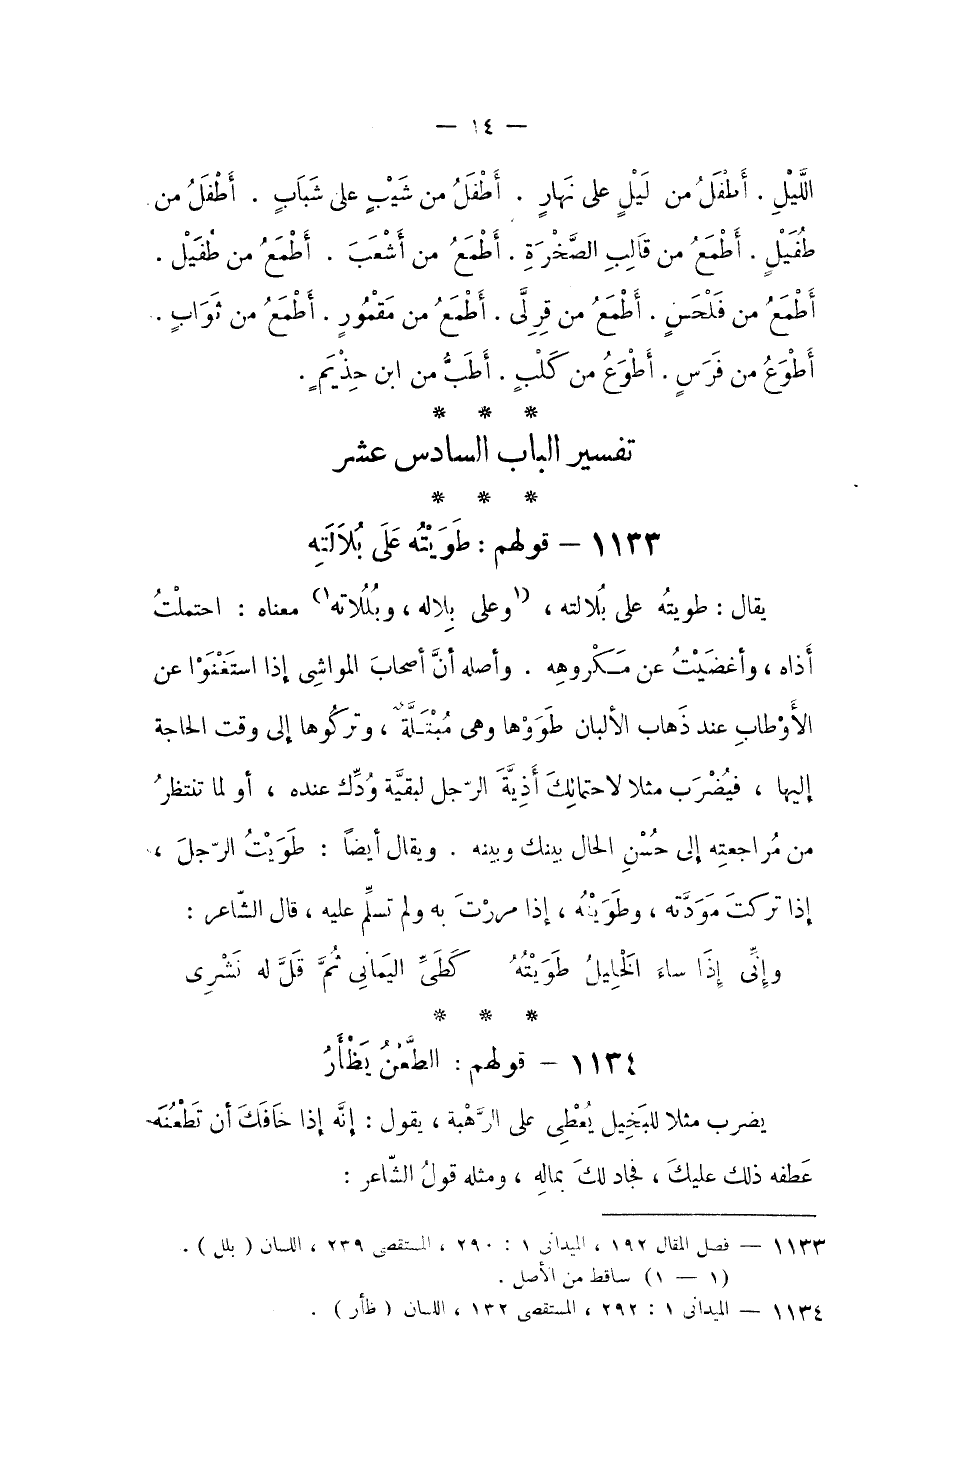 — ١٤ —
اللَّيْلِ . أَطْفَلُ من لَيْلٍ على نَهارٍ . أَطْفَلُ من شَيْبٍ على شَبَابٍ . أَطْفَلُ من
طُفَيْلٍ . أَطْمَعُ من قَالِبِ الصَّخْرَةِ . أَطْمَعُ من أَشْعَبَ . أَطْمَعُ من طُفَيْل .
أَطْمَعُ من فَلْحَسٍ . أَطْمَعُ من قِرِلَّى . أَطْمَعُ من مَقْمُورٍ . أَطْمَعُ من ثَوَابٍ .
أَطْوَعُ من فَرَسٍ . أَطْوَعُ من كَلْبٍ . أَطَبُّ من ابن حِذْيَمٍ .
* * *
تفسير الباب السادس عشر
* * *
١١٣٣ – قولهم : طَوَيْتُه عَلَى بُلَالَتِه
يقال : طويتُه على بُلالته ، (١وعلى بِلاله ، وبُلُلاته١) معناه : احتملْتُ
أذاه ، وأغضَيْتُ عن مَكْروهه . وأصله أنَّ أصحابَ المواشى إذا استَغْنَوْا عن
الأَوْطابِ عند ذَهاب الألبان طَوَوْها وهى مُبْتَلَّة ، وتركُوها إلى وقت الحاجة
إليها ، فيُضْرَب مثلا لاحتمالِكَ أَذِيَّةَ الرّجل لبقيَّة وُدِّك عنده ، أو لما تنتظرُ
من مُراجعتِه إلى حُسْنِ الحال بينك وبينه . ويقال أيضاً : طَوَيْتُ الرّجلَ ،
إذا تركتَ مَوَدَّته ، وطَوَيْتُه ، إذا مررْتَ به ولم تسلِّم عليه ، قال الشّاعر :
وإِنِّى إِذَا ساءَ الخَلِيلُ طَوَيْتُهُ كَطَىِّ اليَمانِى ثُمَّ قَلَّ له نَشْرِى
* * *
١١٣٤ – قولهم : الطَّعْنُ يَظْأَرُ
يضرب مثلا للبَخِيل يُعْطِى على الرَّهْبة ، يقول : إنَّه إذا خَافَكَ أن تَطْعُنَه
عَطفه ذلك عليكَ ، فجاد لكَ بماله ، ومثله قولُ الشّاعر :
١١٣٣ — فصل المقال ١٩٢ ، الميدانى ١ : ٢٩٠ ، المستقصى ٢٣٩ ، اللسان ( بلل ) .
(١ — ١) ساقط من الأصل .
١١٣٤ — الميدانى ١ : ٢٩٢ ، المستقصى ١٣٢ ، اللسان ( ظأر ) .